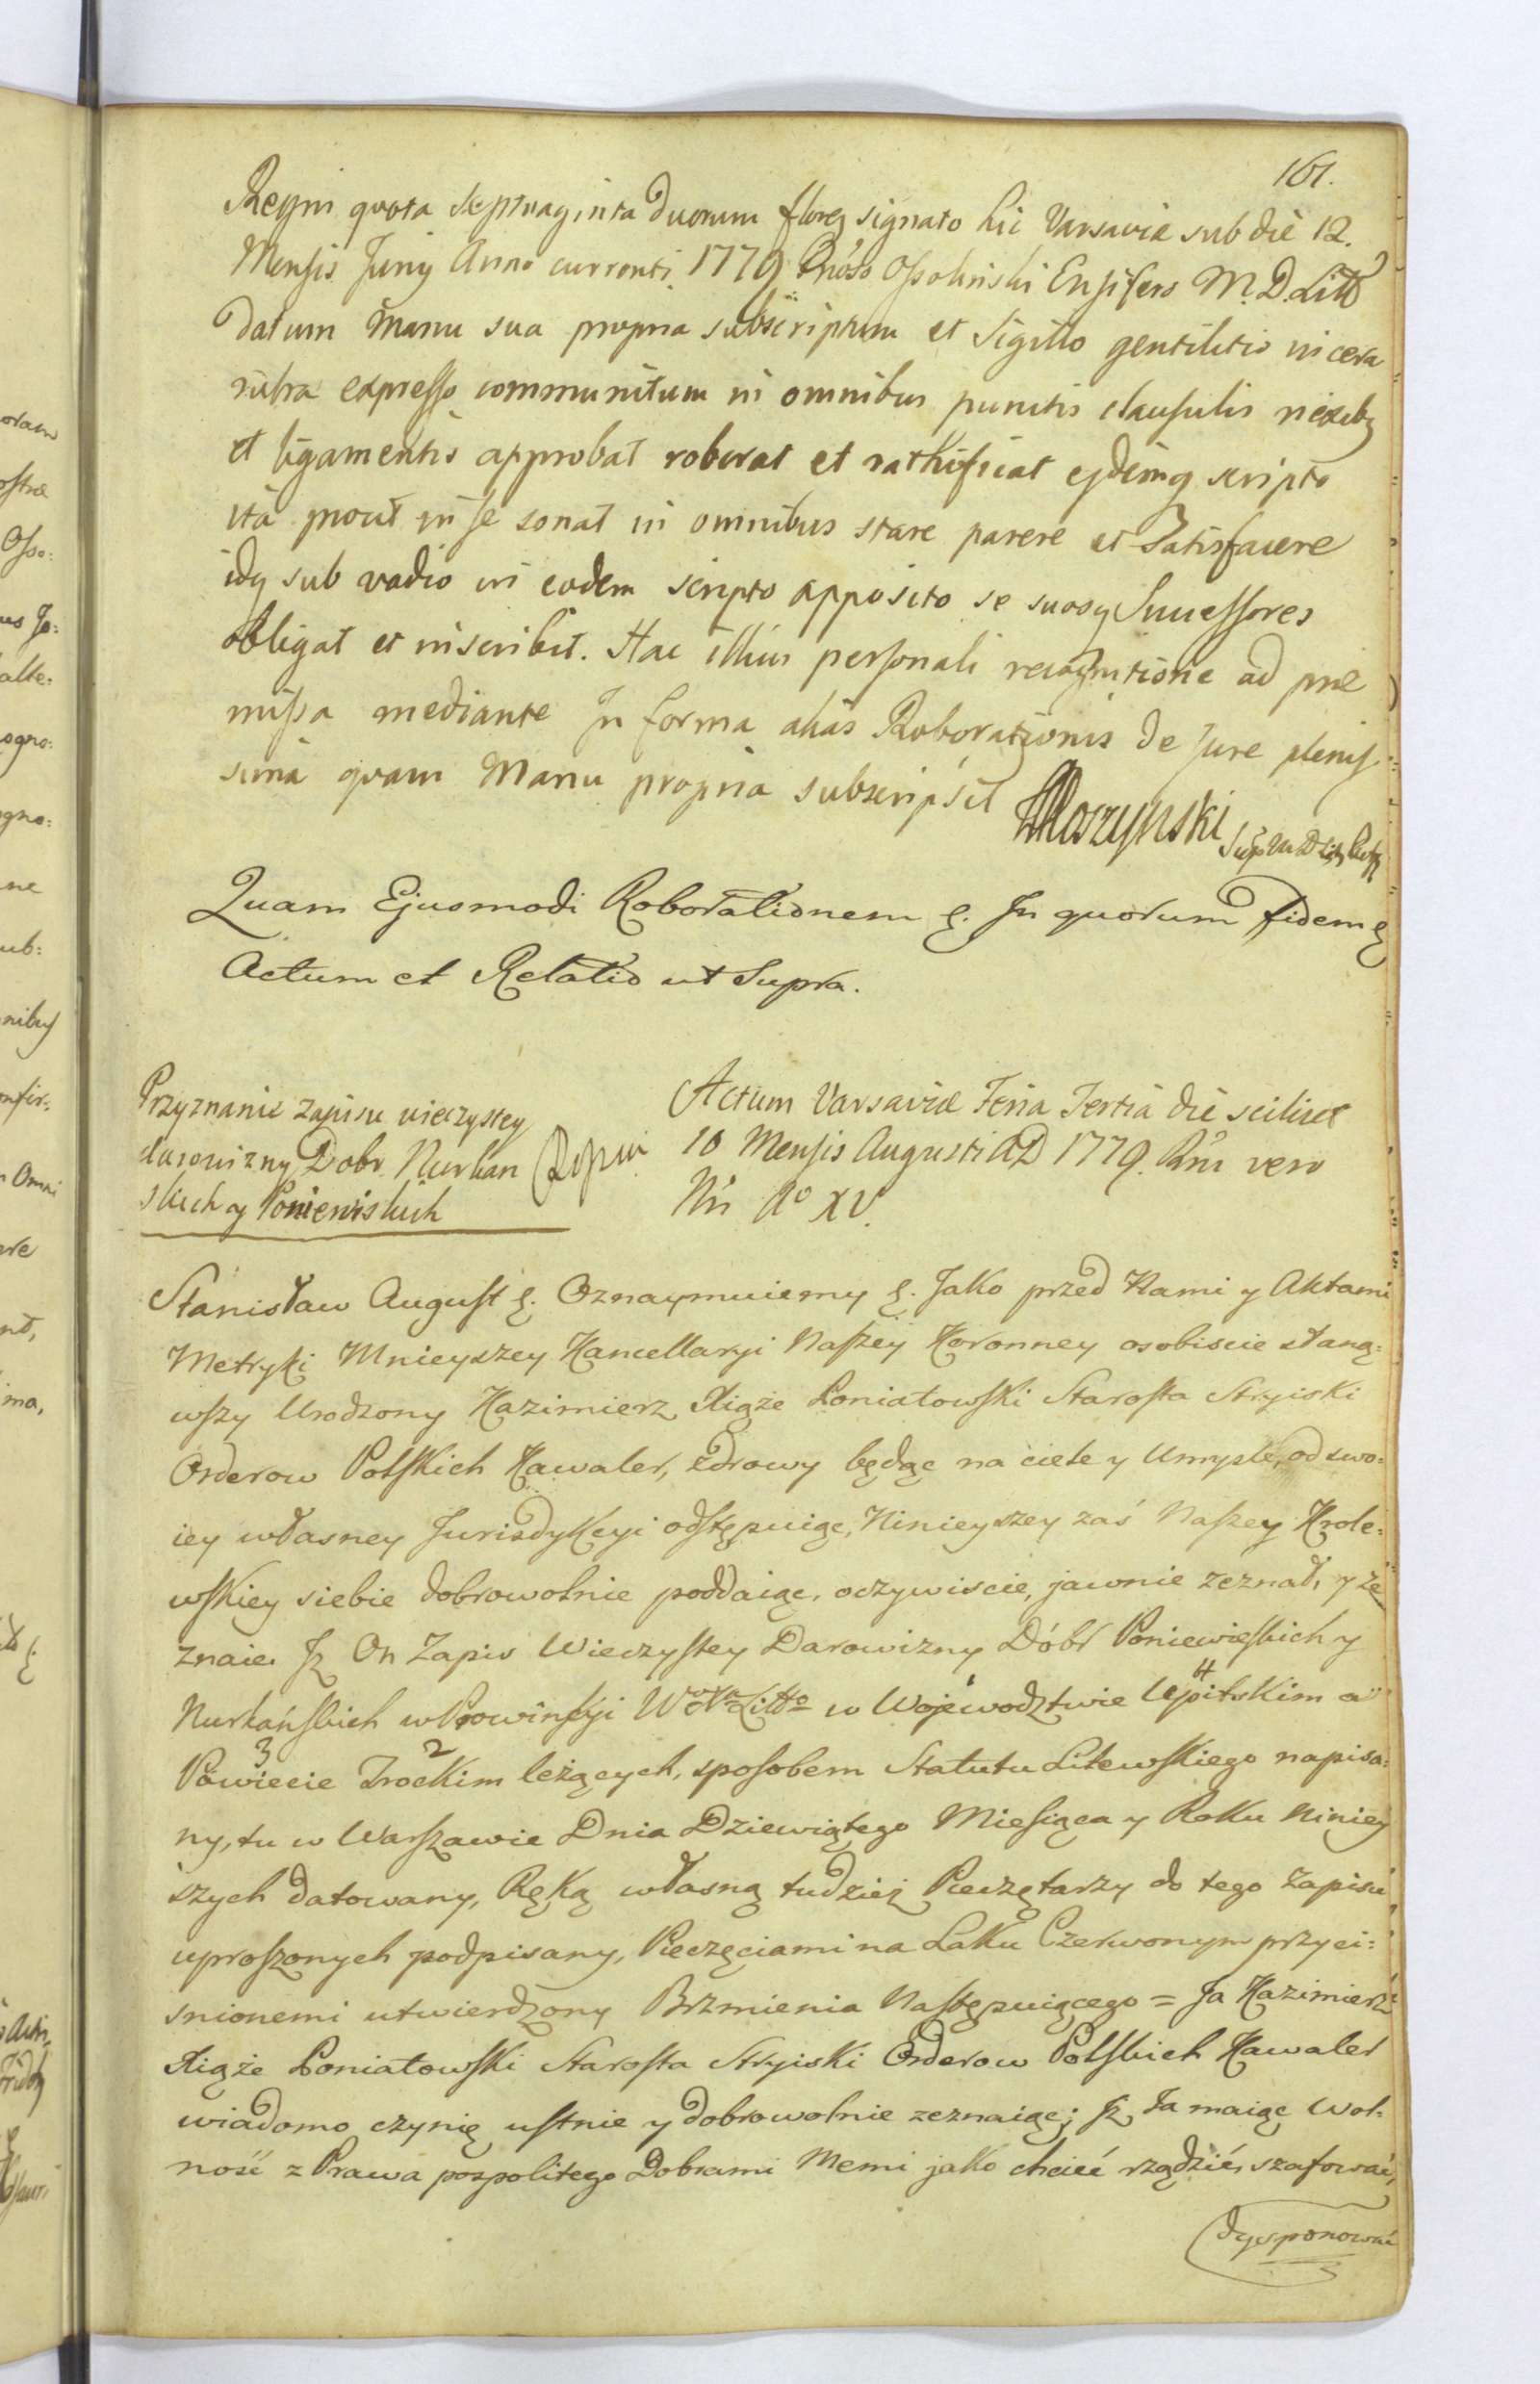 161.
Regni quota septuaginta duorum florenz signato hic Varsaviæ sub die 12.
Mensis Junij Anno currenti 1779 Gnoso Ossolinski Ensifero M. D. Litt
datum Manu sua propria subscriptum et Sigillo gentilitio in cera
rubra expresso communitum in omnibus punctis clausulis nexibq
et ligamentis approbat roborat et rathificat ejdemq scripto
ita prout in se sonat in omnibus stare parere et Satisfacere
idq sub vadio in eodem scripto apposito se suosq Successores
obligat et inscribit. Hac illius personali recognitione ad præ
missa mediante In forma alias Roborationis de jure plenis
sima quam Manu propria subscripsit Moszynski
Quam Ejusmodi Roborationem &. In quorum fidem &
Actum et Relatio ut Supra.
Przyznanie zapisu wieczystey
darowizny Dobr Nurkan
skich y Poniewiskich
Actum Varsaviæ Feria Tertia die scilicet
10 Mensis Augusti AD 1779. Rni vero
Nri Ao XV.
Stanisław August &. Oznaymuiemy &. Jako przed Nami y Aktami
Metryki Mnieyszey Kancellaryi Naszey Koronney osobiscie staną:
wszy Urodzony Kazimierz Xiąże Poniatowski Starosta Stryiski
Orderow Polskich Kawaler, zdrowy będąc na ciele y Umysle, od swo:
iey własney Jurisdykcyi odstępuiąc, Ninieyszey zaś Naszey Krole:
wskiey siebie dobrowolnie poddaiąc, oczywiscie, jawnie zeznał, y ze
znaie. Jż On Zapis Wieczystey Darowizny Dóbr Poniewieskich y
Nurkańskich w Prowincyi W Xa Litto w Wojewodztwie 4 Upitskim a
3 Powiecie 2 Trockim leżących, sposobem Statutu Litewskiego napisa:
ny, tu w Warszawie Dnia Dziewiątego Miesiąca y Roku Niniey
szych datowany, Ręką własną tudzież Pieczętarzy do tego Zapisu
uproszonych podpisany, Pieczęciami na Laku Czerwonym przyci:
snionemi utwierdzony Brzmienia Następuiącego = Ja Kazimierz
Xiąże Poniatowski Starosta Stryiski Orderow Polskich Kawaler
wiadomo czynię ustnie y dobrowolnie zeznaiąc; Jż Ja maiąc Wol:
ność z Prawa pospolitego Dobrami Memi jako chcieć rządzić, szafować,
dysponować